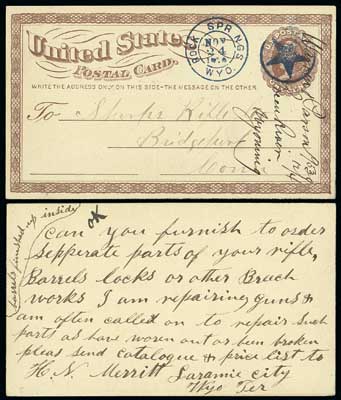 United States
POSTAL CARD.
WRITE THE ADDRESS ONLY ON THIS SIDE-THE MESSAGE ON THE OTHER
ROCK SPRINGS
NOV
24
WYO.
U.S. POSTAGE
To Sharps Rifle
Bridgeport
Conn
Green River
Wyoming
barrels finished up inside
OK
Can you furnish to order
Sepperate parts of your rifle,
Barrels locks or other Breach
works I am repairing guns &
am often called on to repair Such
parts as have woren out or ben broken
pleas send catalogue & price list to
H. N. Merritt Laramie city
Wyo Ter